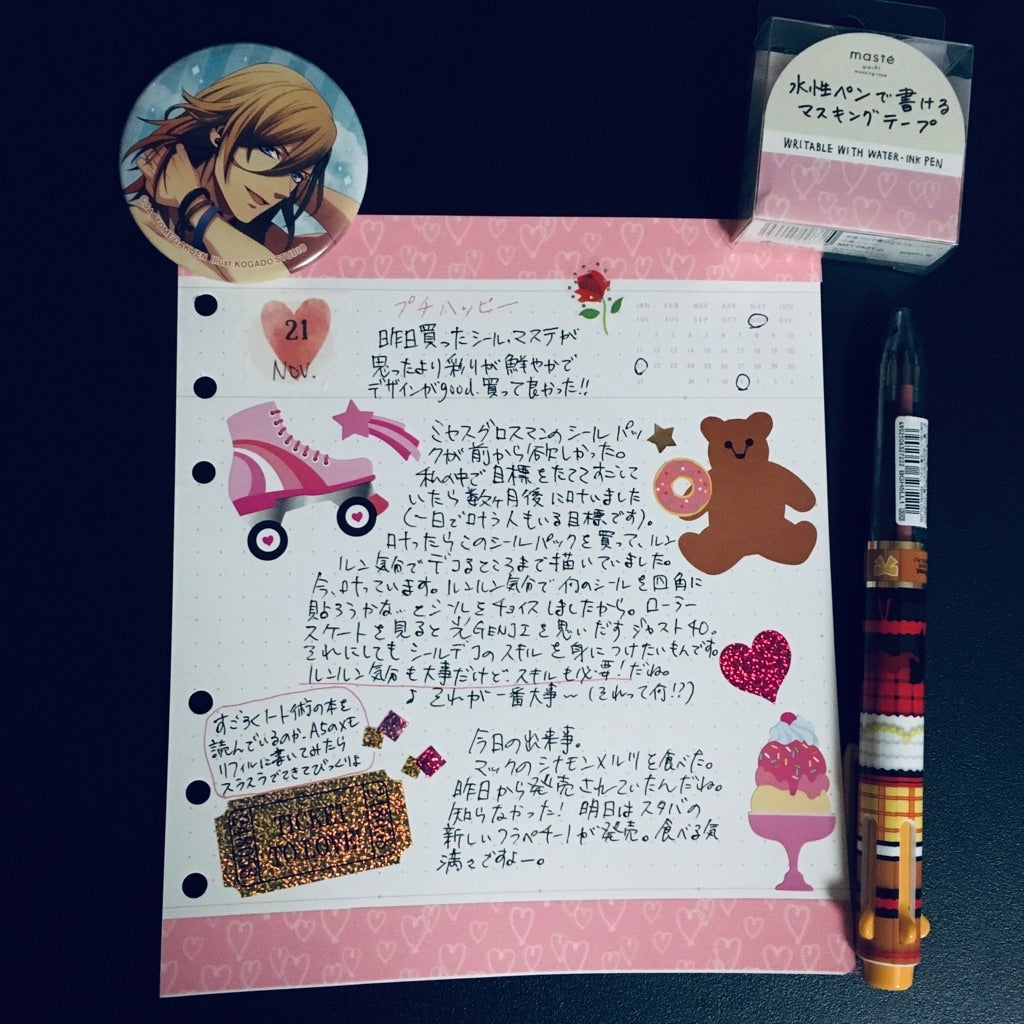 masté
水性ペンで書ける
マスキングテープ
WRITABLE WITH WATER-INK PEN
GARDEN Illust.KOGADO STUDIO
21
NOV.
プチハッピー
昨日買ったシール、マステが
思ったより彩りが鮮やかで
デザインがgood.買って良かった!!
JAN FEB MAR APR MAY JUN
JUL AUG SEP OCT NOV DEC
ミセスグロスマンのシールパッ
クが前から欲しかった。
私の中で目標をたててすごして
いたら数ヶ月後に叶いました
(一日で叶う人もいる目標です)。
叶ったらこのシールパックを買って、ルン
ルン気分でデコるところまで描いていました。
今、叶っています。ルンルン気分で何のシールを四角に
貼ろうかな〜とシールをチョイスしましたから。ローラー
スケートを見ると光GENJIを思いだすジャスト40。
それにしてもシールデコのスキルを身につけたいもんです。
ルンルン気分も大事だけど、スキルも必要!だね。
♪それが一番大事〜(それって何!?)
すごろくノート術の本を
読んでいるのか、A5のメモ
リフィルに書いてみたら
スラスラできてびっくりよ
TICKET
TO LOVE
今日の出来事。
マックのシナモンメルツを食べた。
昨日から発売されていたんだね。
知らなかった!明日はスタバの
新しいフラペチーノが発売。食べる気
満々ですよー。